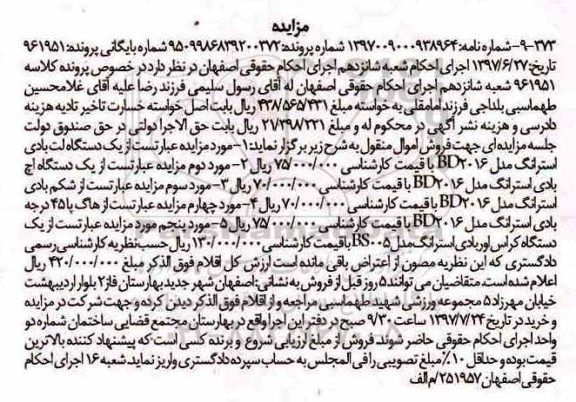 مزایده
۹-۳۷۳-شماره نامه: ۱۳۹۷۰۰۹۰۰۰۹۳۸۹۶۴ شماره پرونده: ۹۵۰۹۹۸۶۸۳۹۲۰۰۳۷۲ شماره بایگانی پرونده: ۹۶۱۹۵۱
تاریخ: ۱۳۹۷/۶/۲۷ اجرای احکام شعبه شانزدهم اجرای احکام حقوقی اصفهان در نظر دارد در خصوص پرونده کلاسه
۹۶۱۹۵۱ شعبه شانزدهم اجرای احکام حقوقی اصفهان له آقای رسول سلیمی فرزند رضا علیه آقای غلامحسین
طهماسبی بلداجی فرزند امامقلی به خواسته مبلغ ۴۳۸/۵۶۵/۴۳۱ ریال بابت اصل خواسته خسارت تاخیر تادیه هزینه
دادرسی و هزینه نشر آگهی در محکوم له و مبلغ ۲۱/۳۹۸/۲۲۱ ریال بابت حق الاجرا دولتی در حق صندوق دولت
جلسه مزایده ای جهت فروش اموال منقول به شرح زیر برگزار نماید: ۱-مورد مزایده عبارتست از یک دستگاه لت بادی
استرانگ مدل BD۲۰۱۶ با قیمت کارشناسی ۷۵/۰۰۰/۰۰۰ ریال ۲- مورد دوم مزایده عبارتست از یک دستگاه اچ
بادی استرانگ مدل BD۲۰۱۶ با قیمت کارشناسی ۷۰/۰۰۰/۰۰۰ ریال ۳-مورد سوم مزایده عبارتست از شکم بادی
استرانگ مدل BD۲۰۱۶ با قیمت کارشناسی ۷۰/۰۰۰/۰۰۰ ریال ۴-مورد چهارم مزایده عبارتست از هاگ پا ۴۵ درجه
بادی استرانگ مدل BD۲۰۱۶ با قیمت کارشناسی ۷۵/۰۰۰/۰۰۰ ریال ۵- مورد پنجم مورد مزایده عبارتست از یک
دستگاه کراس اور بادی استرانگ مدل BS۰۰۵ با قیمت کارشناسی ۱۳۰/۰۰۰/۰۰۰ ریال حسب نظریه کارشناسی رسمی
دادگستری که این نظریه مصون از اعتراض باقی مانده است ارزش کل اقلام فوق الذکر مبلغ ۴۲۰/۰۰۰/۰۰۰ ریال
اعلام شده است. متقاضیان می توانند ۵ روز قبل از فروش به نشانی: اصفهان شهر جدید بهارستان فاز۲ بلوار اردیبهشت
خیابان مهرزاد ۵ مجموعه ورزشی شهید طهماسبی مراجعه و از اقلام فوق الذکر دیدن کرده و جهت شرکت در مزایده
و خرید در تاریخ ۱۳۹۷/۷/۲۴ ساعت ۹/۳۰ صبح در دفتر این اجرا واقع در بهارستان مجتمع قضایی ساختمان شماره دو
واحد اجرای احکام حقوقی حاضر شوند فروش از مبلغ ارزیابی شروع و برنده کسی است که پیشنهاد کننده بالاترین
قیمت بوده و حداقل ۱۰٪ مبلغ تصویبی را فی المجلس به حساب سپرده دادگستری واریز نماید. شعبه ۱۶ اجرای احکام
حقوقی اصفهان ۲۵۱۹۵۷/م الف